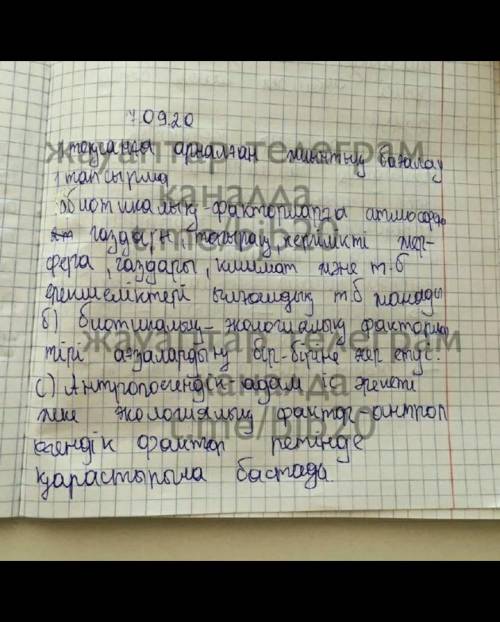 7.09.20
тоқсанға арналған жиынтық бағалау
1 тапсырма
абиотикалық факторларға атмосфера
газдары, топырақ, жергілікті жер-
фера, газдары, климат және т.б
ерекшеліктері ылғалдық т.б жатады
б) биотикалық - экологиялық фактор
тірі ағзалардың бір-біріне әсер етуі.
с) Антропогендік - адам іс әрекеті
жеке экологиялық фактор - антроп
огендік фактор ретінде
қарастырыла бастады.
жауаптар телеграм
каналда
t.me/bjb20
жауаптар телеграм
каналда
t.me/bjb20